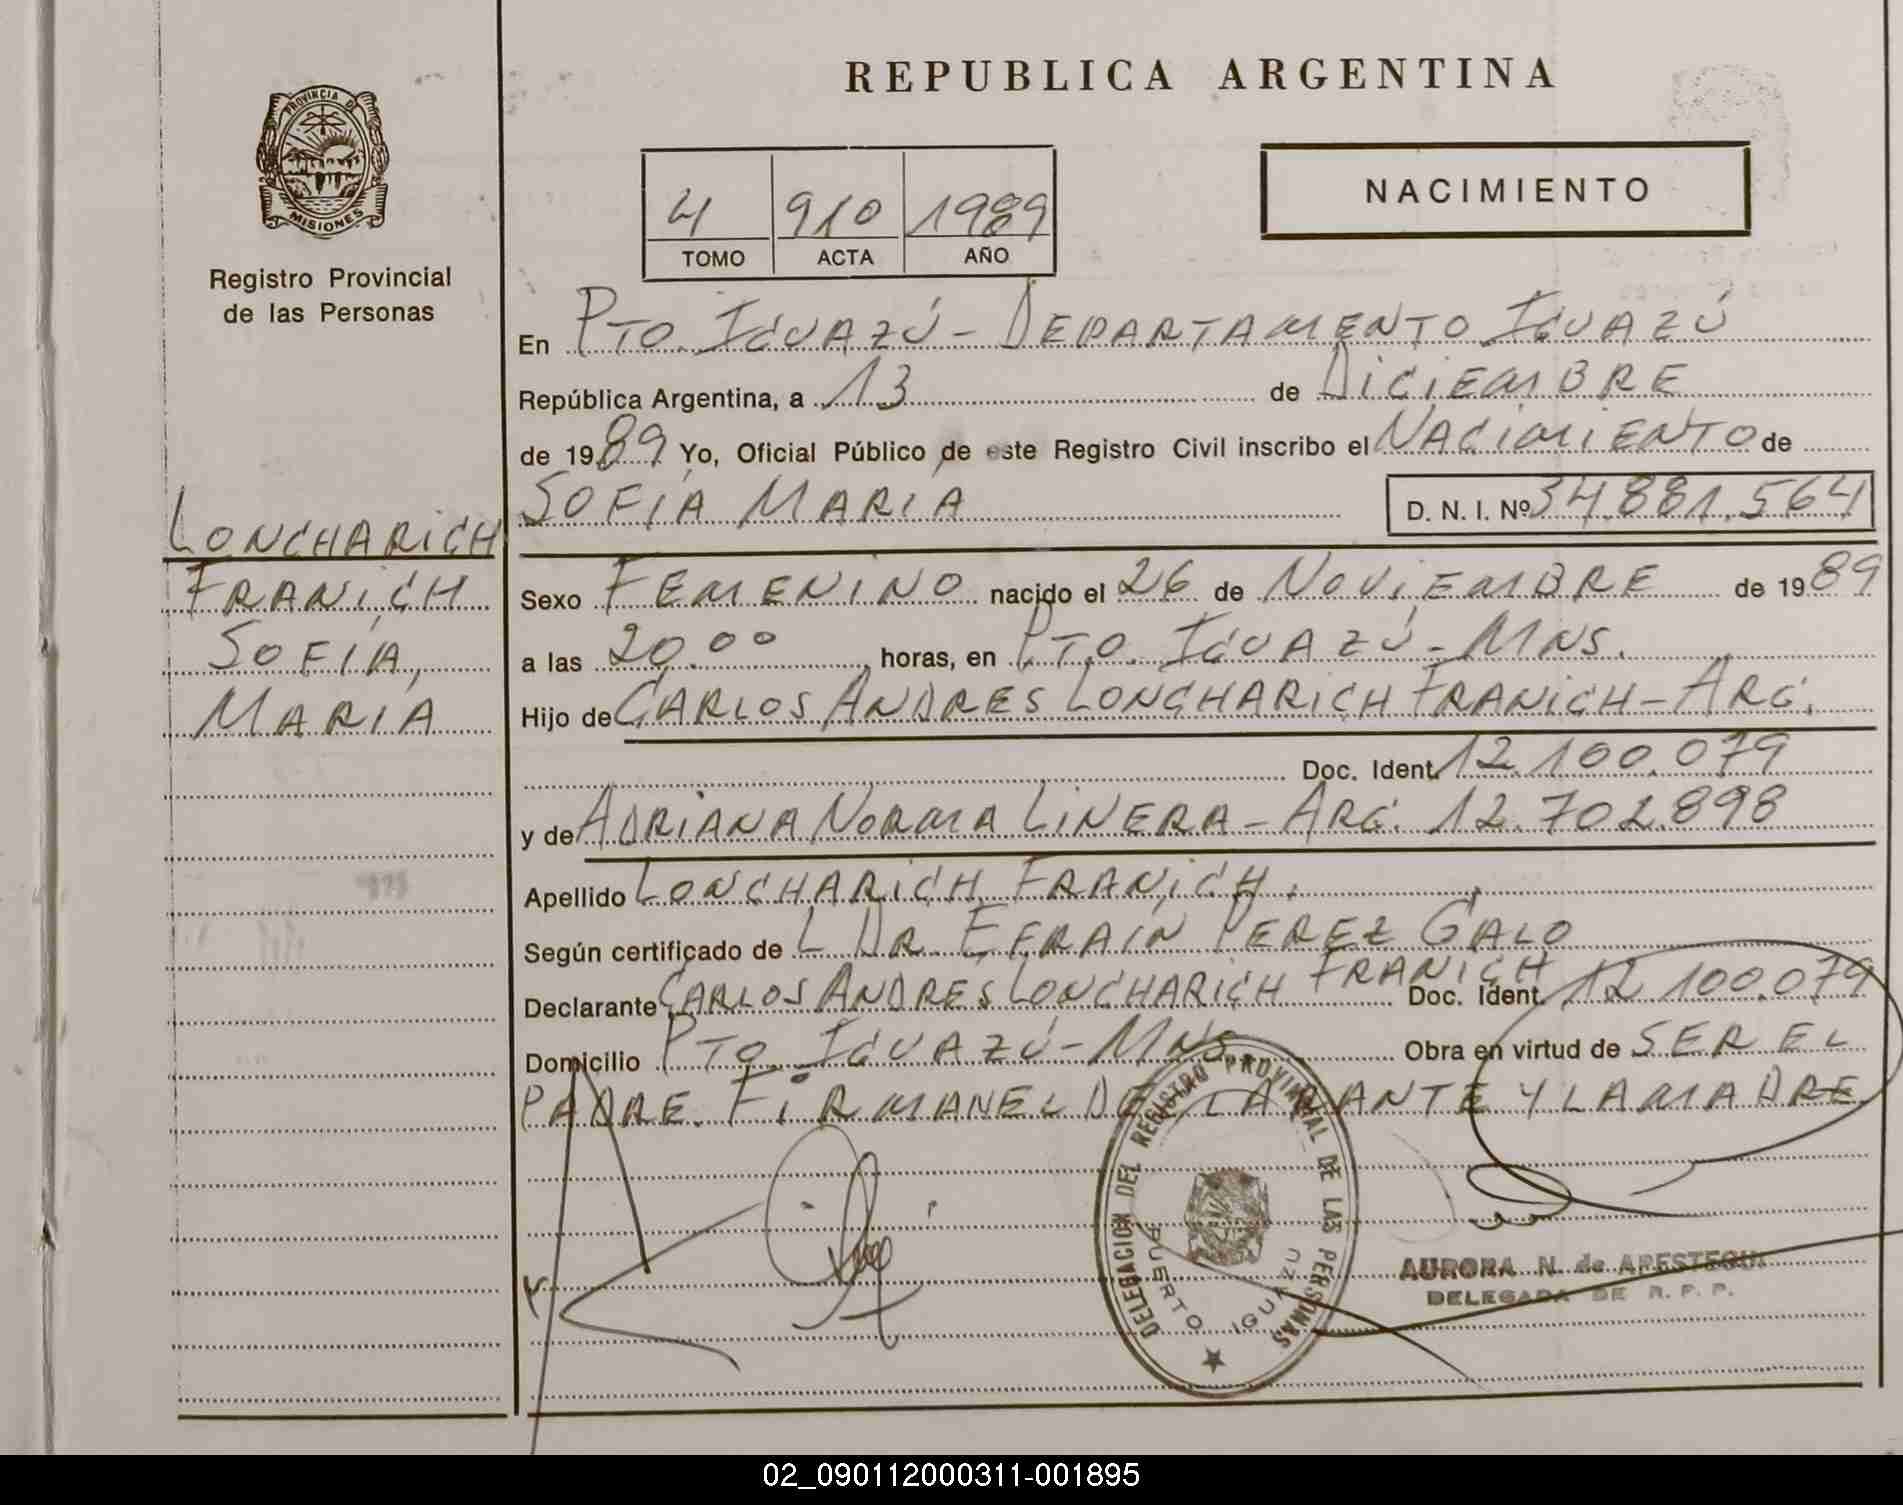 REPUBLICA ARGENTINA
PROVINCIA DE
MISIONES
Registro Provincial
de las Personas
NACIMIENTO
4 910 1989
TOMO ACTA AÑO
En PTO. IGUAZÚ - DEPARTAMENTO IGUAZÚ
República Argentina, a 13 de DICIEMBRE
de 1989 Yo, Oficial Público de este Registro Civil inscribo el NACIMIENTO de
SOFÍA MARÍA D. N. I. Nº 34.881.564
LONCHARICH
FRANICH
SOFÍA
MARÍA
Sexo FEMENINO nacido el 26 de NOVIEMBRE de 1989
a las 20.00 horas, en PTO. IGUAZÚ - MNS.
Hijo de CARLOS ANDRES LONCHARICH FRANICH - ARG.
Doc. Ident. 12.100.079
y de ADRIANA NORMA LINERA - ARG. 12.702.898
Apellido LONCHARICH FRANICH.
Según certificado de L DR. EFRAÍN PEREZ GALO
Declarante CARLOS ANDRES LONCHARICH FRANICH Doc. Ident. 12.100.079
Domicilio PTO. IGUAZÚ - MNS Obra en virtud de SER EL
PADRE. FIRMAN EL DECLARANTE Y LA MADRE
DELEGACION DEL REGISTRO PROVINCIAL DE LAS PERSONAS
PUERTO IGUAZU
AURORA N. de APESTEGUI
DELEGADA DE R. P. P.
02_090112000311-001895